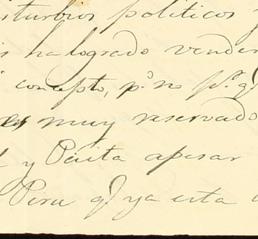 sturbios politicos
ha logrado vender
concepto, p.o no p.r q
es muy reservado
y Peita apesar
Peru q.e ya esta